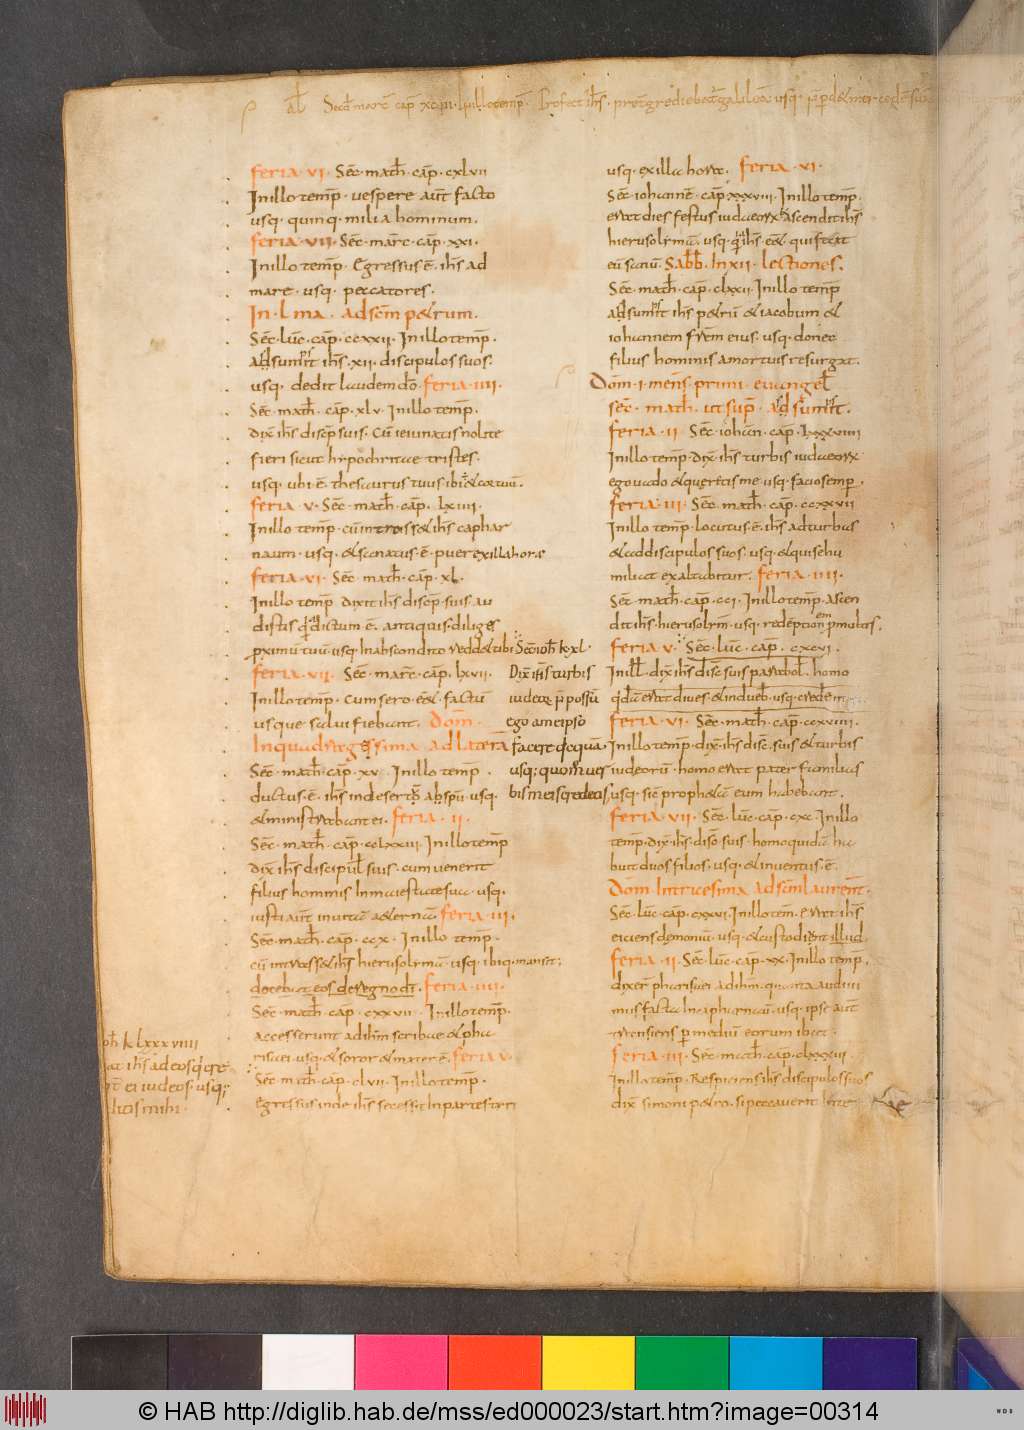 Al Sec̄d marc̄ cap̄
feria · vi · Sec̄ · math̄ · cap̄ · cxlvii
Inillo temp̄ · uespere aut̄ facto
usq· quinq · milia hominum ·
feria · vii · Sec̄ · mar̄c · cap̄ · xxi ·
Inillo temp̄ · Egressus ē · ihs̄ ad
mare · usq · peccatores ·
In · l ma · adscm̄ petrum ·
Sec̄ · luc̄ · cap̄ · ccxxii · Inillo temp̄ ·
adsumsit ihs̄ · xii · discipulos suos ·
usq · dedit laudem do · feria · iiii ·
Sec̄ · math̄ · cap̄ · xlv · Inillo temp̄ ·
dix̄ ihs̄ discp̄ suis · Cū ieiunatis nolite
fieri sicut hypochritae tristes ·
usq · ubi ē · thesaurus tuus ibi & cor tuū ·
feria · v · Sec̄ · math̄ · cap̄ · lxiiii ·
Inillo temp̄ · cū introiss& ihs̄ caphar
naum · usq · &sanatus · ē · puer exilla hora
feria · vi · Sec̄ · math̄ · cap̄ · xl ·
Inillo temp̄ dixit ihs̄ discp̄ · suis · au
distis q̄ dictum ē · antiquis · diliges
proximū tuū · usq · Inabscondito redd& tibi
feria · vii · Sec̄ · marc̄ · cap̄ · lxvii ·
Inillo temp̄ · Cum sero · ēē& · factū
usque salui fiebant · Dom̄ ·
Inquadragessima ad lateran̄
Sec̄ · math̄ · cap̄ · xv · Inillo temp̄ ·
ductus · ē · ihs̄ indesertū · ab spū · usq ·
&ministrabant ei · feria · ii ·
Sec̄ · math̄ · cap̄ · cclxxiii · Inillo temp̄
dix̄ ihs̄ discipul̄ suis · cum uenerit
filius hominis Inmaiestate sua · usq ·
iusti aut̄ inuitā aeternā · feria · iii ·
Sec̄ · math̄ · cap̄ · ccx · Inillo temp̄ ·
cū intrass& ihs̄ hierusolymā · usq · ibiq · mansit ;
docebat eos de regno dī · feria · iiii ·
Sec̄ · math̄ · cap̄ · cxxvii · Inillo temp̄ ·
accesserunt adihm̄ scribae & pha
risaei · usq · & soror & mater ē · feria v ·
Sec̄ · math̄ · cap̄ · clvii · Inillo temp̄ ·
Egressus inde ihs̄ secessit In partes tyri
Sec̄ ioh̄ k · xl ·
Dix̄ ihs̄ turbis
iudeoꝝ p̄ possū
ego ameipso
facere quicquā ·
usq; quom̄ uer
bis meis credetis,
k lxxxviiii
at ihs̄ adeos
ei iudeos · usq;
mihi ·
usq · exilla hora · feria · vi ·
Sec̄ · iohannē · cap̄ · xxxviii · Inillo temp̄ ·
erat dies festus iudaeorꝝ & ascendit ihs̄
hierusolymā · usq · q̄ ihs̄ · eēt · qui fecit
eū sanū · Sabb̄ · In xii · lectiones ·
Sec̄ · math̄ · cap̄ · clxxii · Inillo temp̄
adsumsit ihs̄ petrū & iacobum &
iohannem frem̄ eius · usq · donec
filius hominis amortuis resurgat ·
Dom̄ · i · mens̄ · primi · euangel̄
sec̄ · math̄ · ut sup̄ · adsumsit ·
feria · ii · Sec̄ · iohan̄ · cap̄ · lxxxviiii
Inillo temp̄ · dix̄ · ihs̄ turbis iudaeorꝝ
ego uado & queretis me · usq · facio semp̄ ·
feria · iii · Sec̄ · math̄ · cap̄ · ccxxvii
Inillo temp̄ · locutus · ē · ihs̄ adturbas
&addiscipulos suos · usq · &qui sehu
miliat exaltabitur · feria · iiii ·
Sec̄ · math̄ · cap̄ · cci · Inillo temp̄ · ascen
dit ihs̄ · hierusolym̄ · usq · redēptionem p̄ multis ·
feria v · Sec̄ · luc̄ · cap̄ · cxcvi ·
Inill̄ · dix̄ ihs̄ disc̄ suis parabol̄ · homo
qdā erat diues · & indueb̄ · usq ·
feria · vi · Sec̄ · math̄ · cap̄ · ccxviiii ·
Inillo temp̄ · dix̄ · ihs̄ disc̄ · suis & turbis
iudeorū · homo erat pater familias
usq · sic̄ prophetā eum habebant ·
feria · vii · Sec̄ · luc̄ · cap̄ · cxc · Inillo
temp̄ · dix̄ · ihs̄ · disc̄ · suis · homo quidā ha
buit duos filios · usq · & inuentus · ē ·
Dom̄ · Intricesima adscm̄ laurent̄ ·
Sec̄ · luc̄ · cap̄ · cxxvi · Inillo tem̄ · erat ihs̄
eiciens demoniū · usq · & custodient illud ·
feria · ii · Sec̄ · luc̄ · cap̄ · xx · Inillo temp̄ ·
dixer̄ pharisaei adihm̄ · quanta audiui
mus facta In capharnaū · usq · ipse aut̄
transiens p̄ mediū eorum ibat ·
feria · iii · Sec̄ · math̄ · cap̄ · clxxxiii ·
Inillo temp̄ · Respiciens ihs̄ discipulos suos
dix̄ simoni petro · si peccauerit Inte
© HAB http://diglib.hab.de/mss/ed000023/start.htm?image=00314